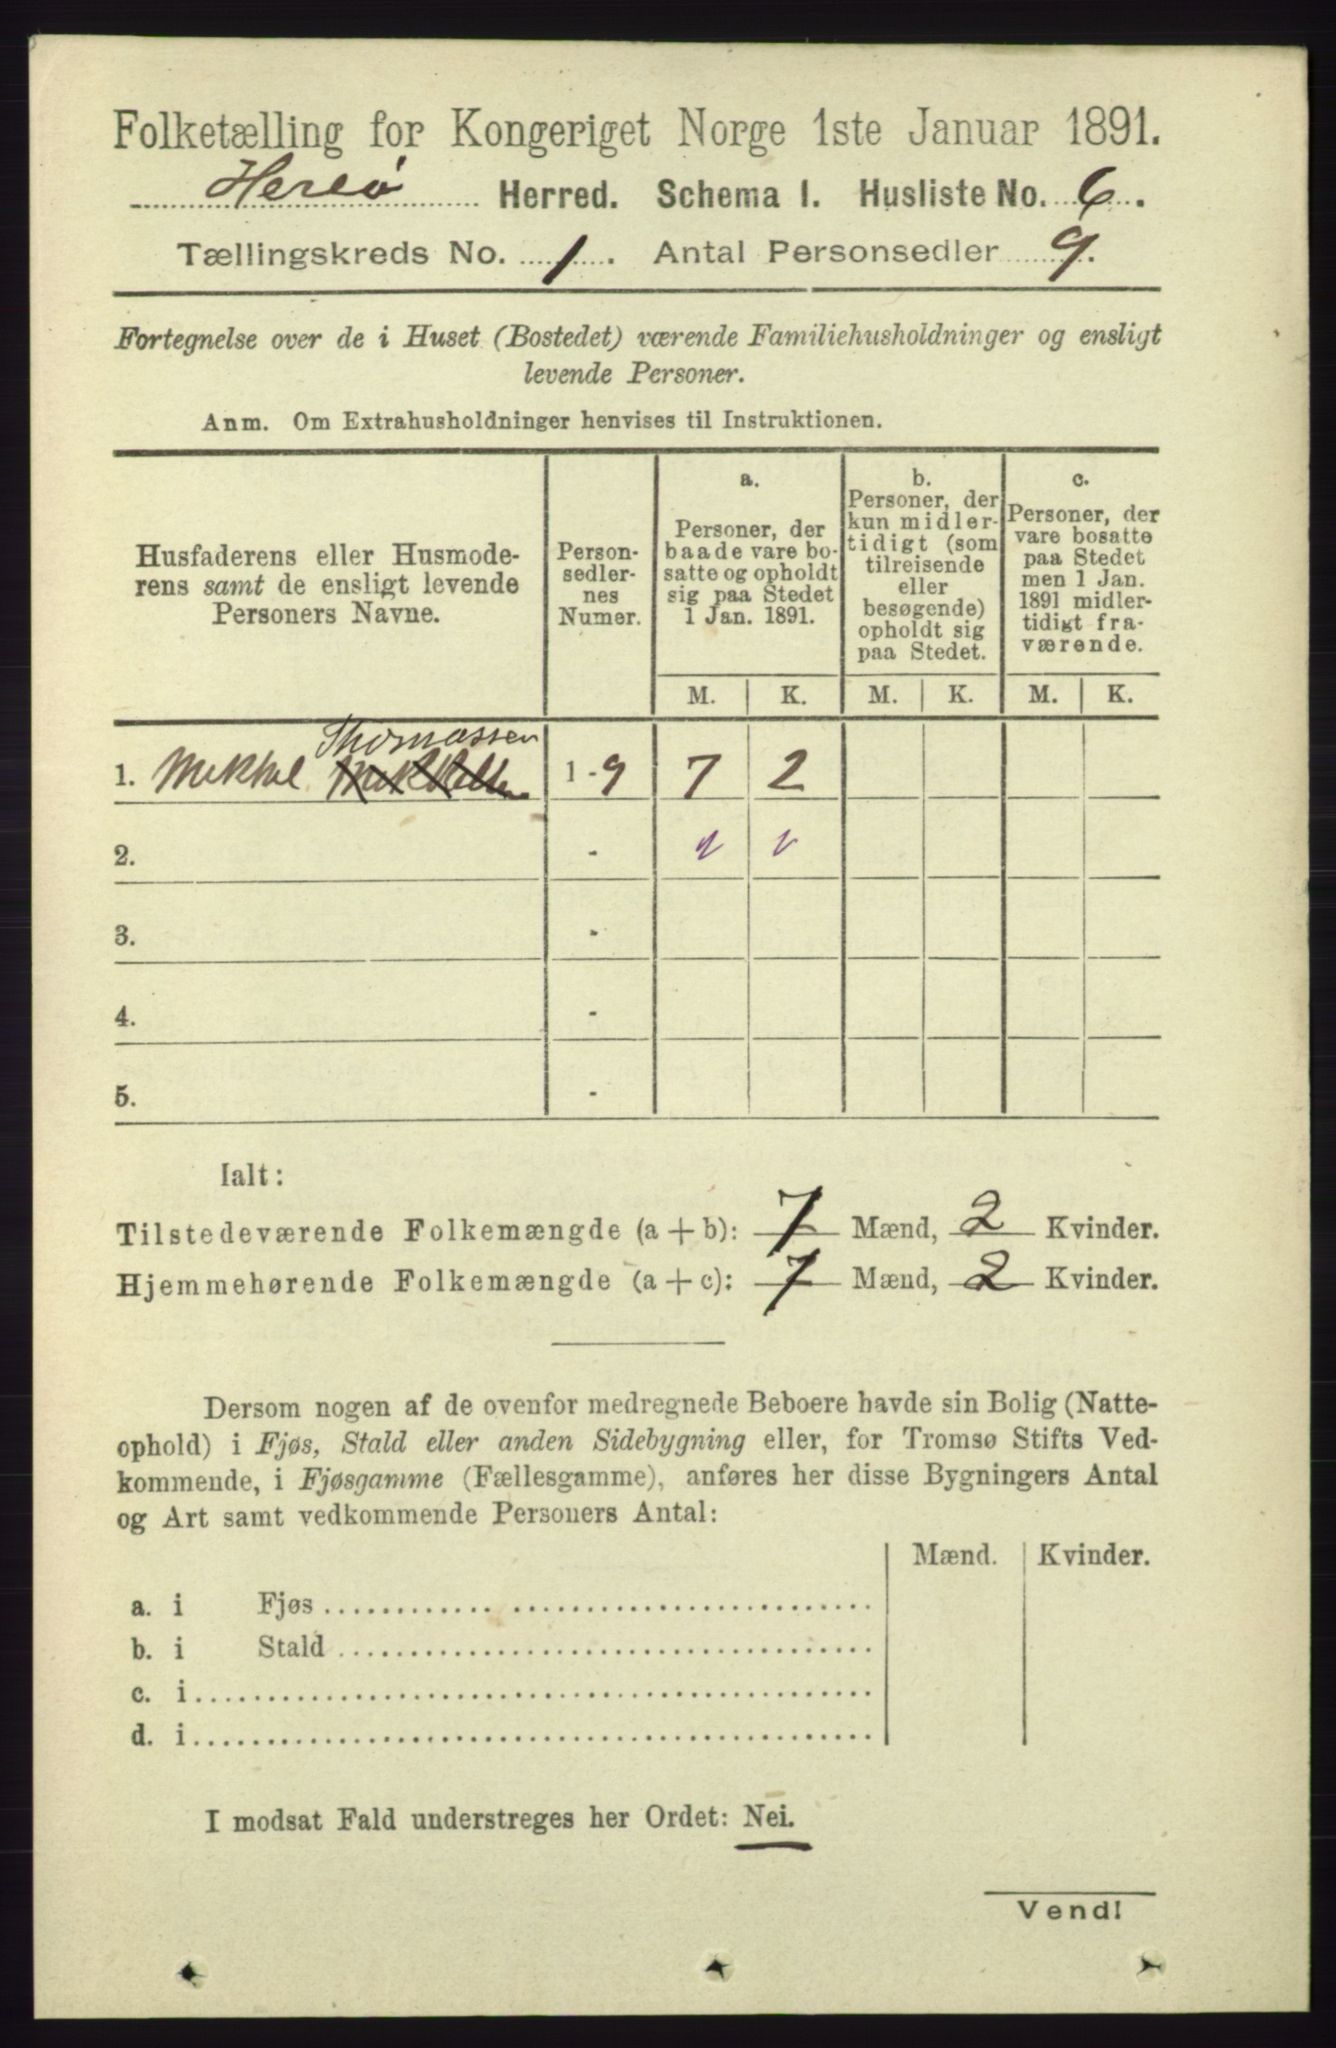 Folketælling for Kongeriget Norge 1ste Januar 1891.
Herø Herred. Schema I. Husliste No. 6.
Tællingskreds No. 1. Antal Personsedler 9.
Fortegnelse over de i Huset (Bostedet) værende Familiehusholdninger og ensligt
levende Personer.
Anm. Om Extrahusholdninger henvises til Instruktionen.
Husfaderens eller Husmode-
rens samt de ensligt levende
Personers Navne.
Person-
sedler-
nes
Numer.
a.
Personer, der
baade vare bo-
satte og opholdt
sig paa Stedet
1 Jan. 1891.
b.
Personer, der
kun midler-
tidigt (som
tilreisende
eller
besøgende)
opholdt sig
paa Stedet.
c.
Personer, der
vare bosatte
paa Stedet
men 1 Jan.
1891 midler-
tidigt fra-
værende.
M. K. M. K. M. K.
Thomassen
1. Mikkel Mikkelsen 1-9 7 2
2. -
3. -
4. -
5. -
Ialt:
Tilstedeværende Folkemængde (a + b): 7 Mænd, 2 Kvinder.
Hjemmehørende Folkemængde (a + c): 7 Mænd, 2 Kvinder.
Dersom nogen af de ovenfor medregnede Beboere havde sin Bolig (Natte-
ophold) i Fjøs, Stald eller anden Sidebygning eller, for Tromsø Stifts Ved-
kommende, i Fjøsgamme (Fællesgamme), anføres her disse Bygningers Antal
og Art samt vedkommende Personers Antal:
Mænd. Kvinder.
a. i Fjøs
b. i Stald
c. i
d. i
I modsat Fald understreges her Ordet: Nei.
Vend!